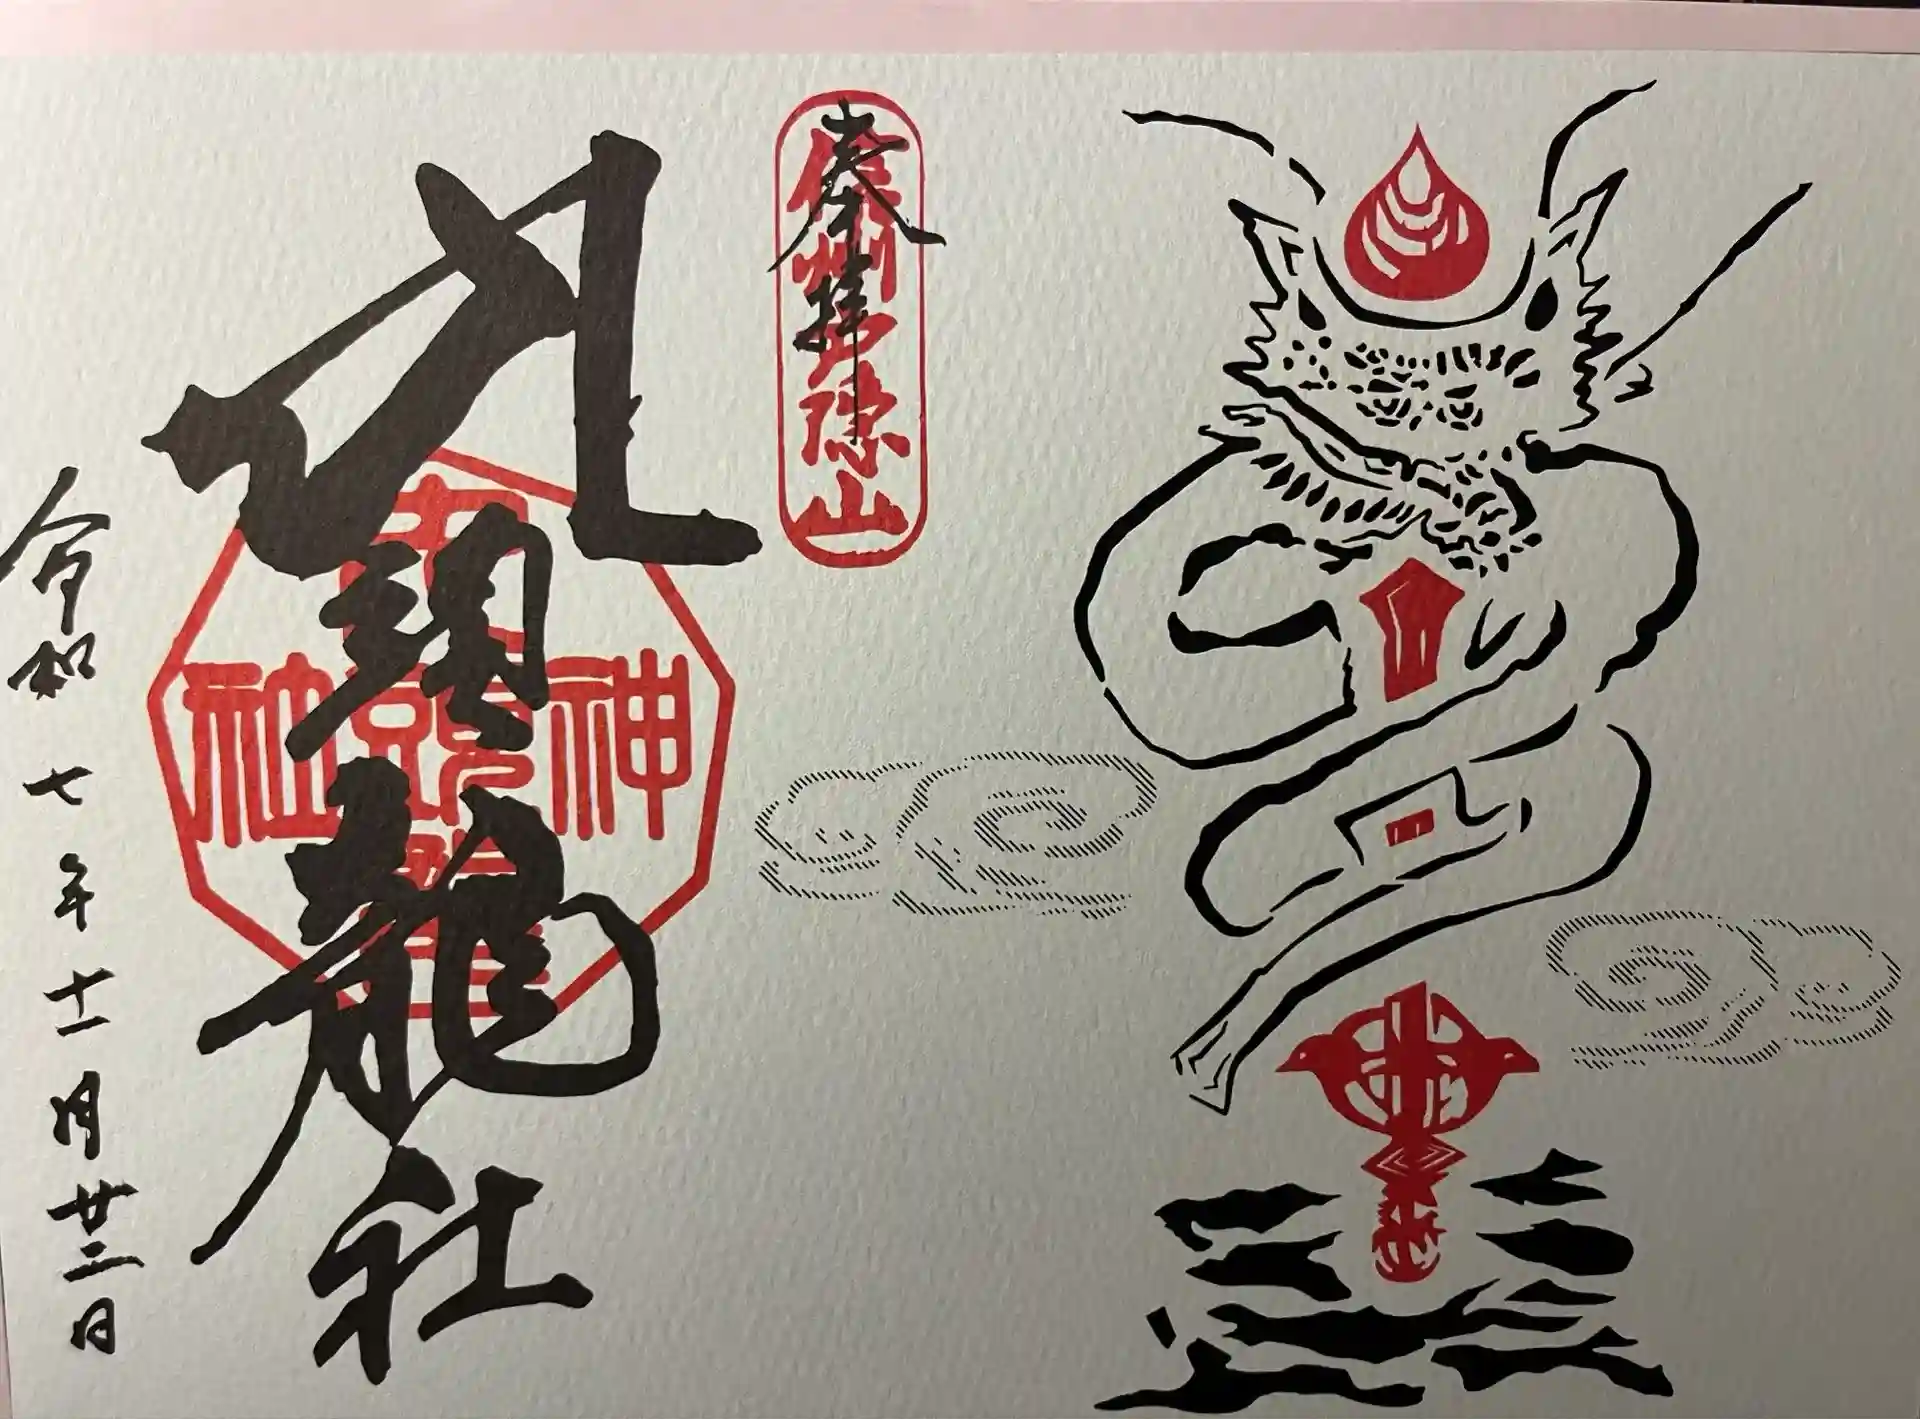 奉拝
信州戸隠山
九頭龍社
神社
令和七年十一月廿三日